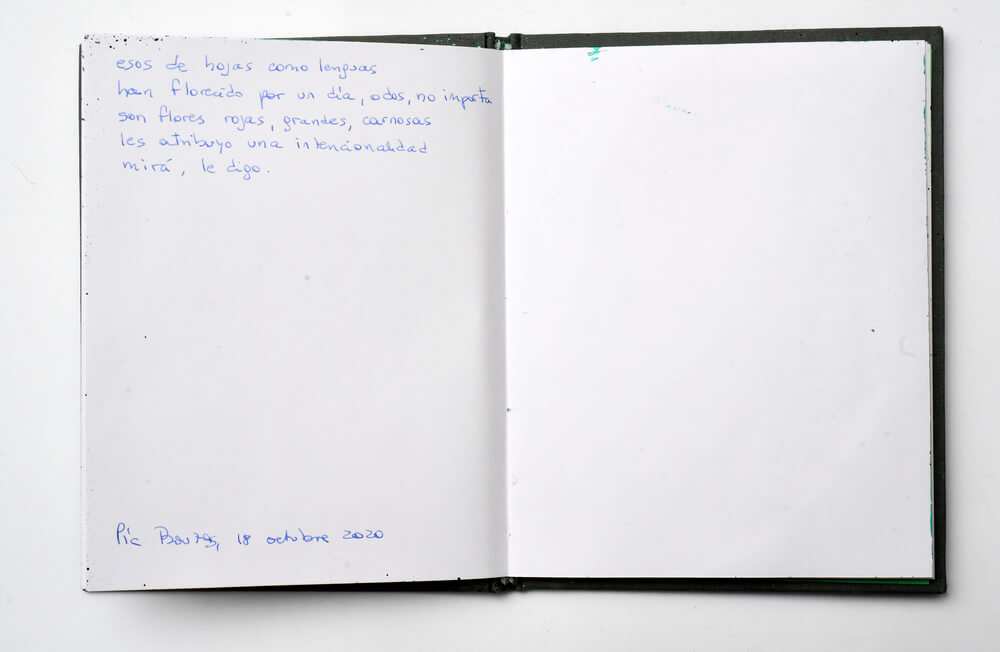 esos de hojas como lenguas
han florecido por un día, o dos, no importa
son flores rojas, grandes, carnosas
les atribuyo una intencionalidad
mirá, le digo.
Pía 18 octubre 2020